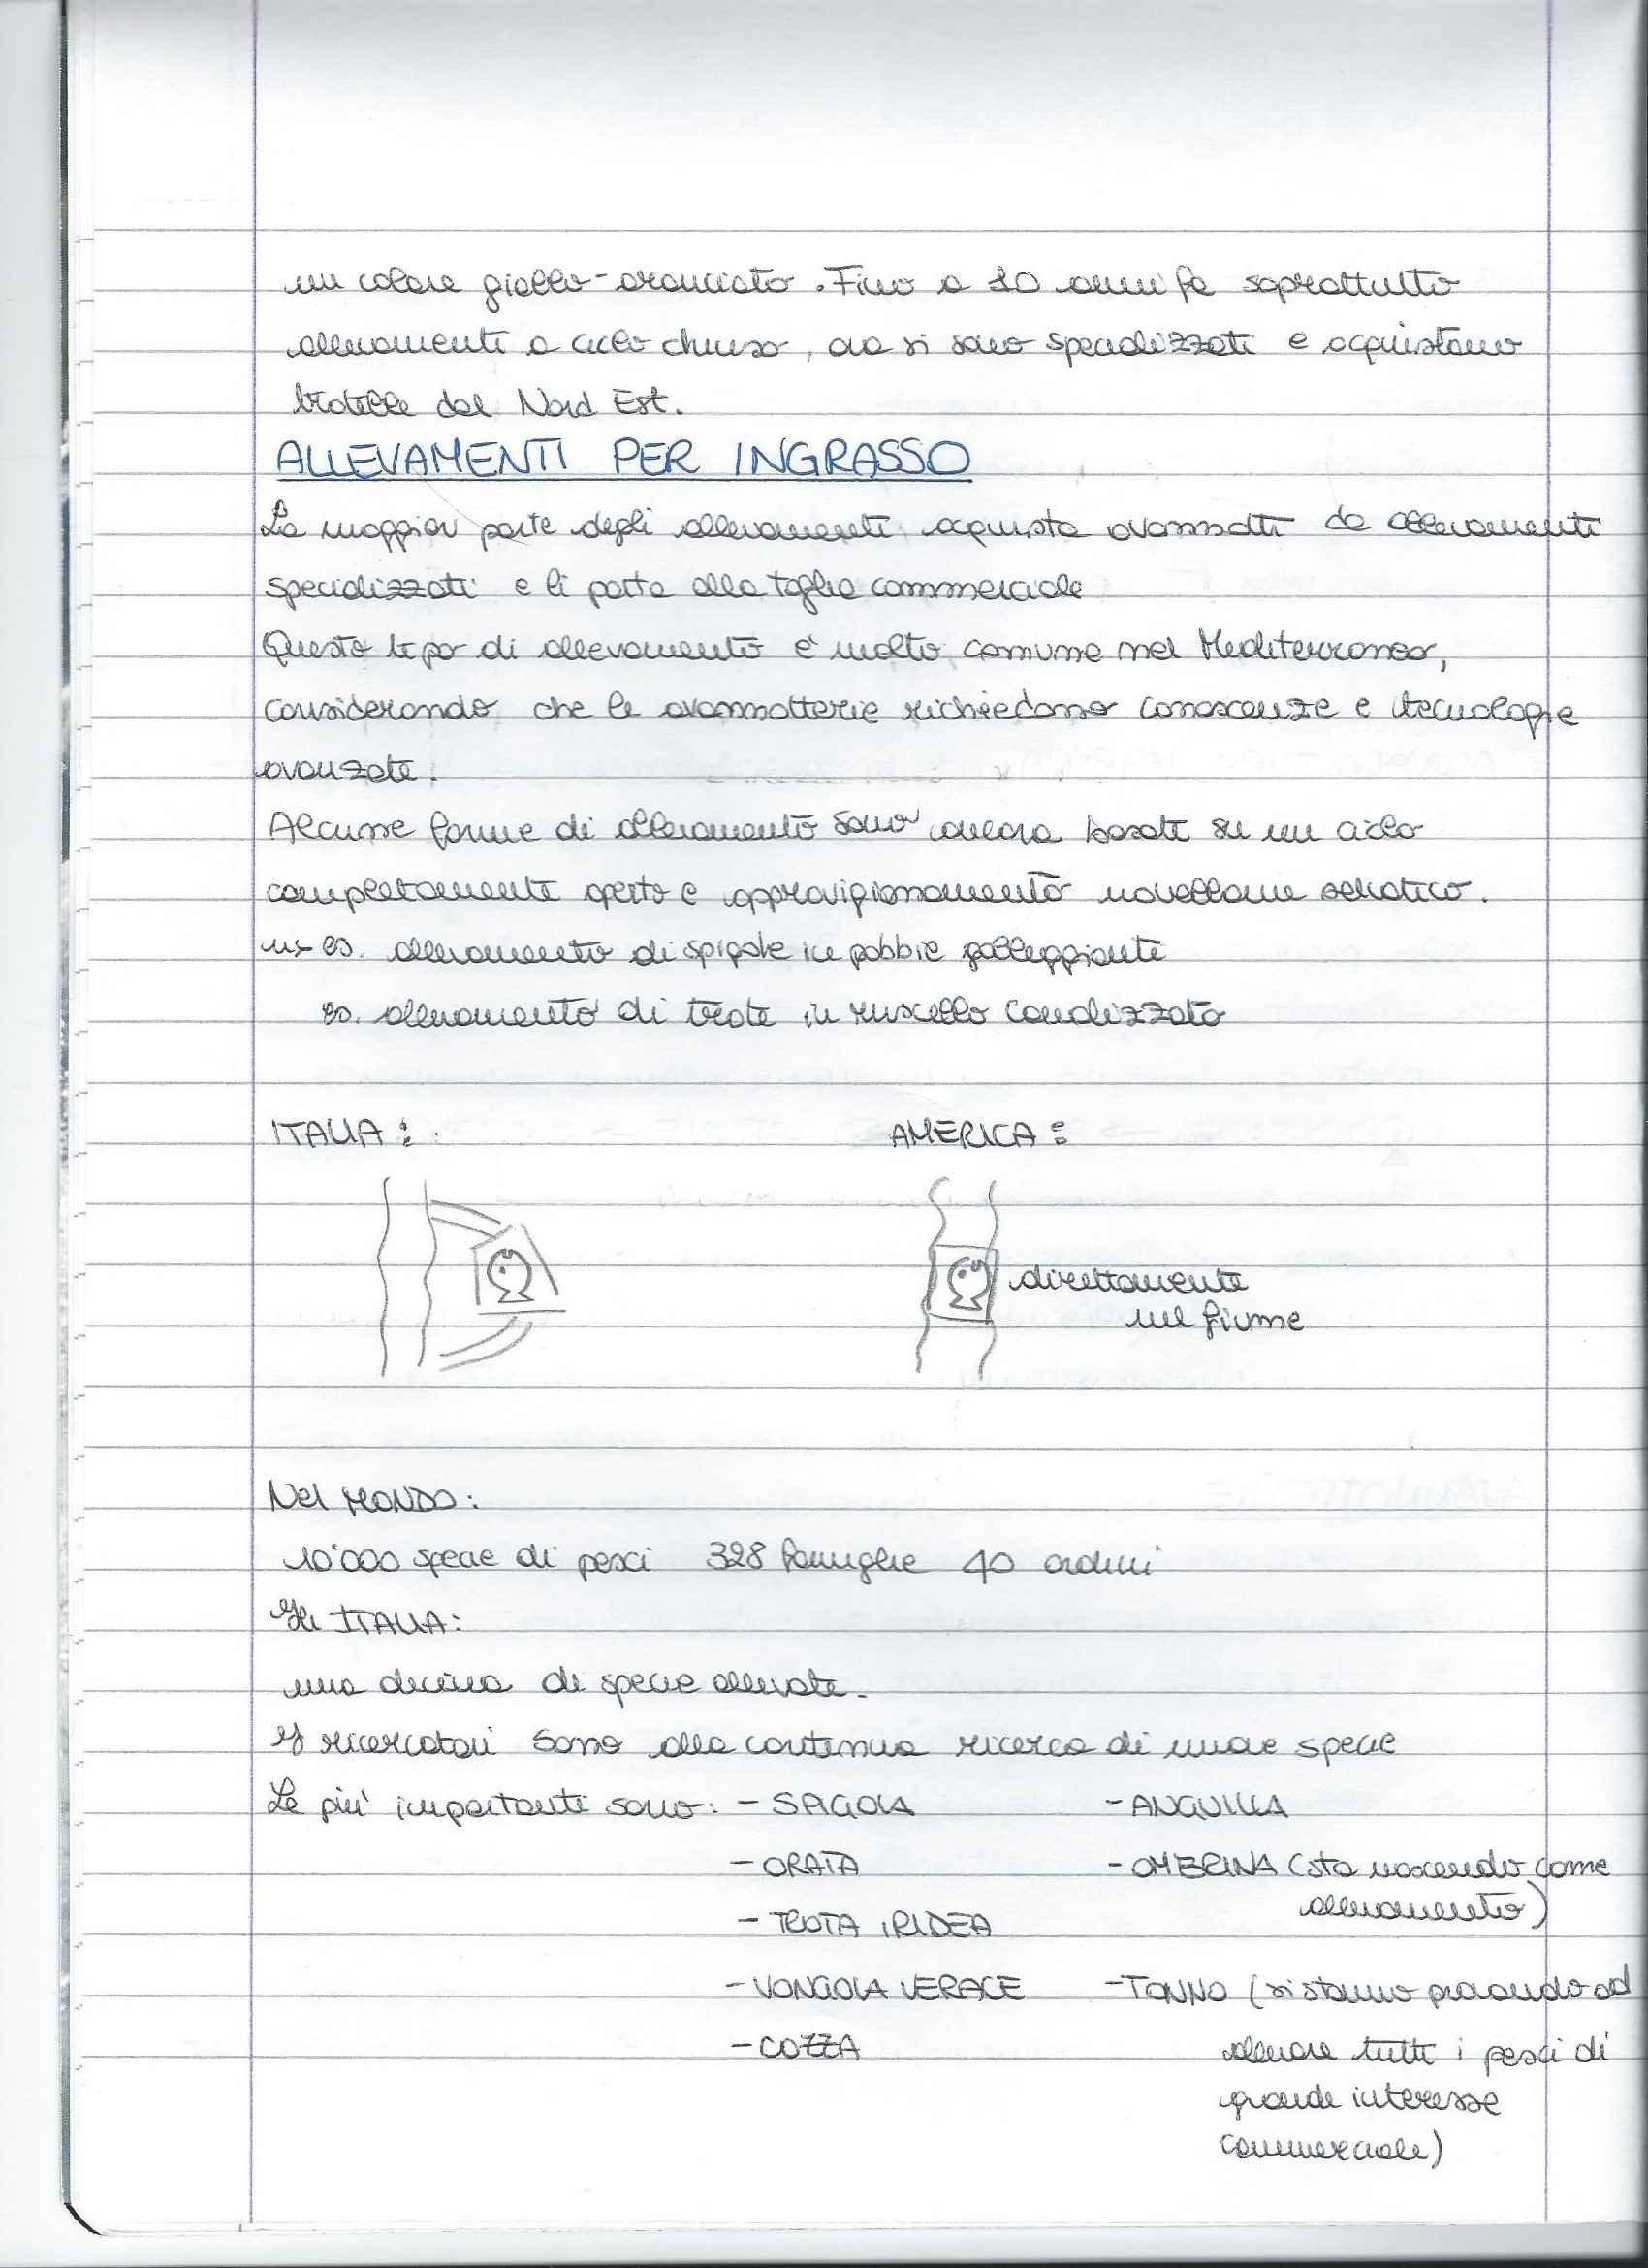 un colore giallo-aranciato. Fino a 10 anni fa soprattutto
allevamenti a ciclo chiuso, ora si sono specializzati e acquistano
trotelle dal Nord Est.
ALLEVAMENTI PER INGRASSO
La maggior parte degli allevamenti acquista avannotti da allevamenti
specializzati e li porta alla taglia commerciale
Questo tipo di allevamento è molto comune nel Mediterraneo,
considerando che le avannotterie richiedono conoscenze e tecnologie
avanzate.
Alcune forme di allevamento sono ancora basate su un ciclo
completamente aperto e approvigionamento novellame selvatico.
es. allevamento di spigole in gabbie galleggianti
es. allevamento di trote in ruscello canalizzato
ITALIA: AMERICA:
direttamente
nel fiume
Nel MONDO:
10'000 specie di pesci 328 famiglie 40 ordini
In ITALIA:
una decina di specie allevate.
I ricercatori sono alla continua ricerca di nuove specie
Le più importanti sono: - SPIGOLA - ANGUILLA
- ORATA - OMBRINA (sta nascendo come
allevamento)
- TROTA IRIDEA
- VONGOLA VERACE - TONNO (si stanno provando ad
- COZZA allevare tutti i pesci di
grande interesse
commerciale)